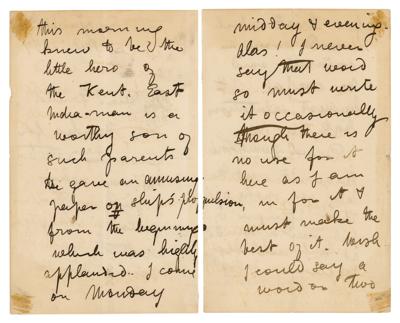 this morning
knew to be the
little hero of
the Kent. East
India-man is a
worthy son of
such parents
He gave an amusing
paper on ships propulsion,
from the beginning
which was highly
applauded. I come
on Monday
midday & evening.
Alas! I never
say that word
so must write
it occasionally
though there is
no use for it
here as I am
in for it &
must make the
best of it. Wish
I could say a
word or two